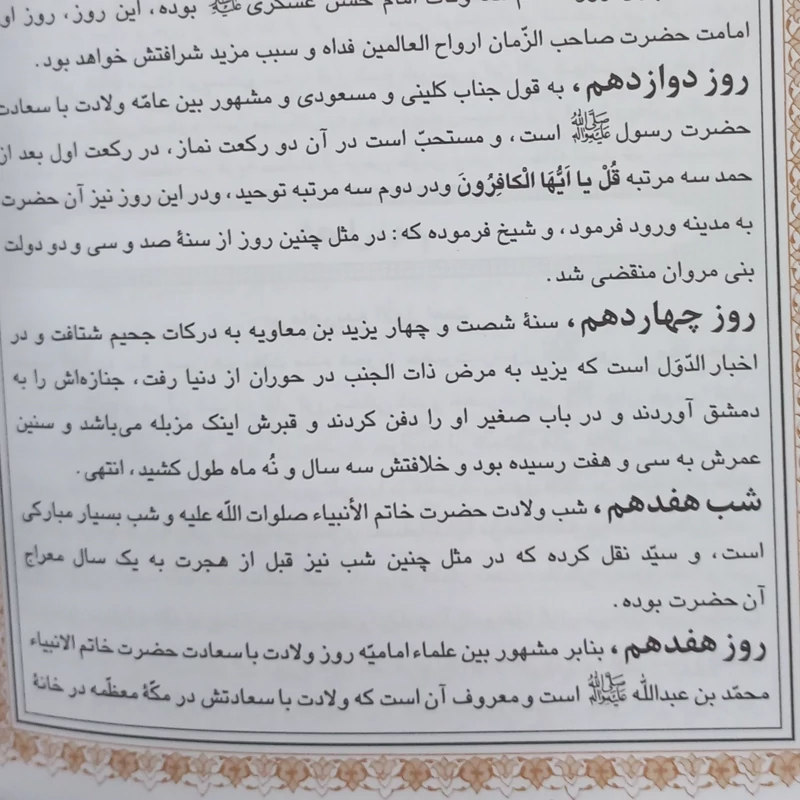 امام حسن عسکری ﷺ بوده، این روز، روز اول
امامت حضرت صاحب الزّمان ارواح العالمین فداه و سبب مزید شرافتش خواهد بود.
روز دوازدهم، به قول جناب کلینی و مسعودی و مشهور بین عامّه ولادت با سعادت
حضرت رسول ﷺ است، و مستحبّ است در آن دو رکعت نماز، در رکعت اول بعد از
حمد سه مرتبه قُلْ یا اَیُّهَا الْکافِرُونَ ودر دوم سه مرتبه توحید، ودر این روز نیز آن حضرت
به مدینه ورود فرمود، و شیخ فرموده که: در مثل چنین روز از سنهٔ صد و سی و دو دولت
بنی مروان منقضی شد.
روز چهاردهم، سنهٔ شصت و چهار یزید بن معاویه به درکات جحیم شتافت و در
اخبار الدّوَل است که یزید به مرض ذات الجنب در حوران از دنیا رفت، جنازه‌اش را به
دمشق آوردند و در باب صغیر او را دفن کردند و قبرش اینک مزبله می‌باشد و سنین
عمرش به سی و هفت رسیده بود و خلافتش سه سال و نُه ماه طول کشید، انتهی.
شب هفدهم، شب ولادت حضرت خاتم الأنبیاء صلوات اللّه علیه و شب بسیار مبارکی
است، و سیّد نقل کرده که در مثل چنین شب نیز قبل از هجرت به یک سال معراج
آن حضرت بوده.
روز هفدهم، بنابر مشهور بین علماء امامیّه روز ولادت با سعادت حضرت خاتم الانبیاء
محمّد بن عبداللّه ﷺ است و معروف آن است که ولادت با سعادتش در مکّهٔ معظّمه در خانهٔ